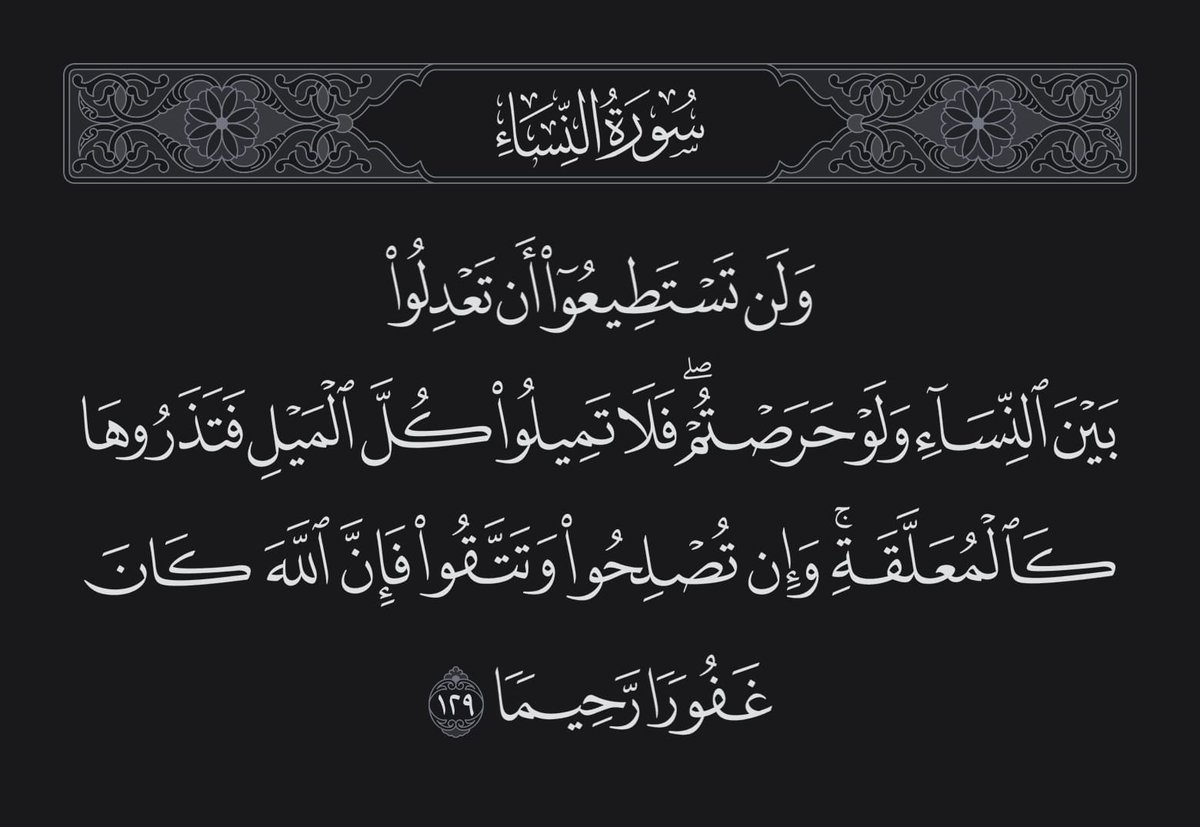 سُورَةُ النِّسَاءِ
وَلَن تَسْتَطِيعُوٓا۟ أَن تَعْدِلُوا۟
بَيْنَ ٱلنِّسَآءِ وَلَوْ حَرَصْتُمْ ۖ فَلَا تَمِيلُوا۟ كُلَّ ٱلْمَيْلِ فَتَذَرُوهَا
كَٱلْمُعَلَّقَةِ ۚ وَإِن تُصْلِحُوا۟ وَتَتَّقُوا۟ فَإِنَّ ٱللَّهَ كَانَ
غَفُورًا رَّحِيمًا ١٢٩